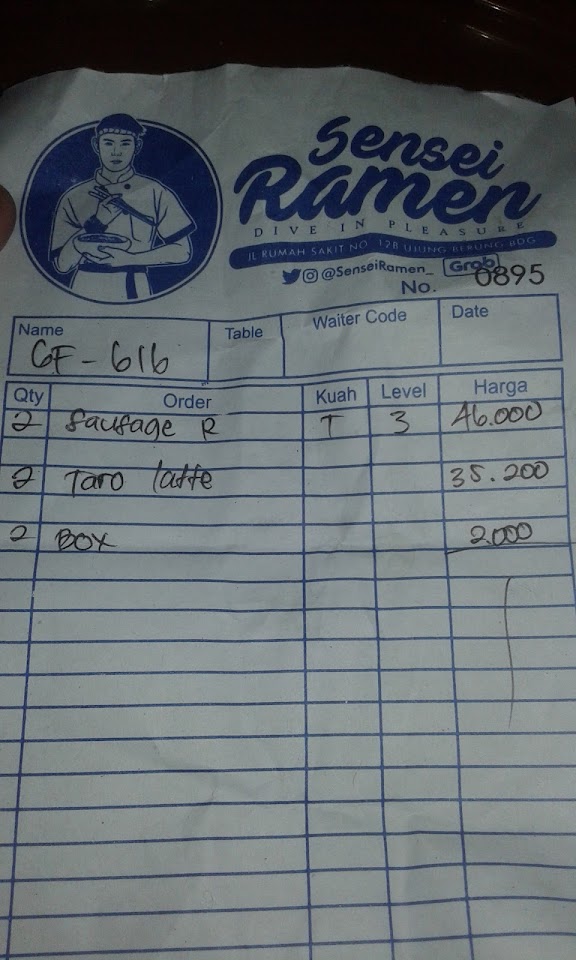 Sensei
Ramen
DIVE IN PLEASURE
JL RUMAH SAKIT NO. 12B UJUNG BERUNG BDG
@SenseiRamen_ Grab
No. 0895
Name Table Waiter Code Date
GF-616
Qty Order Kuah Level Harga
2 Sausage R T 3 46.000
2 Taro latte 35.200
2 BOX 2.000